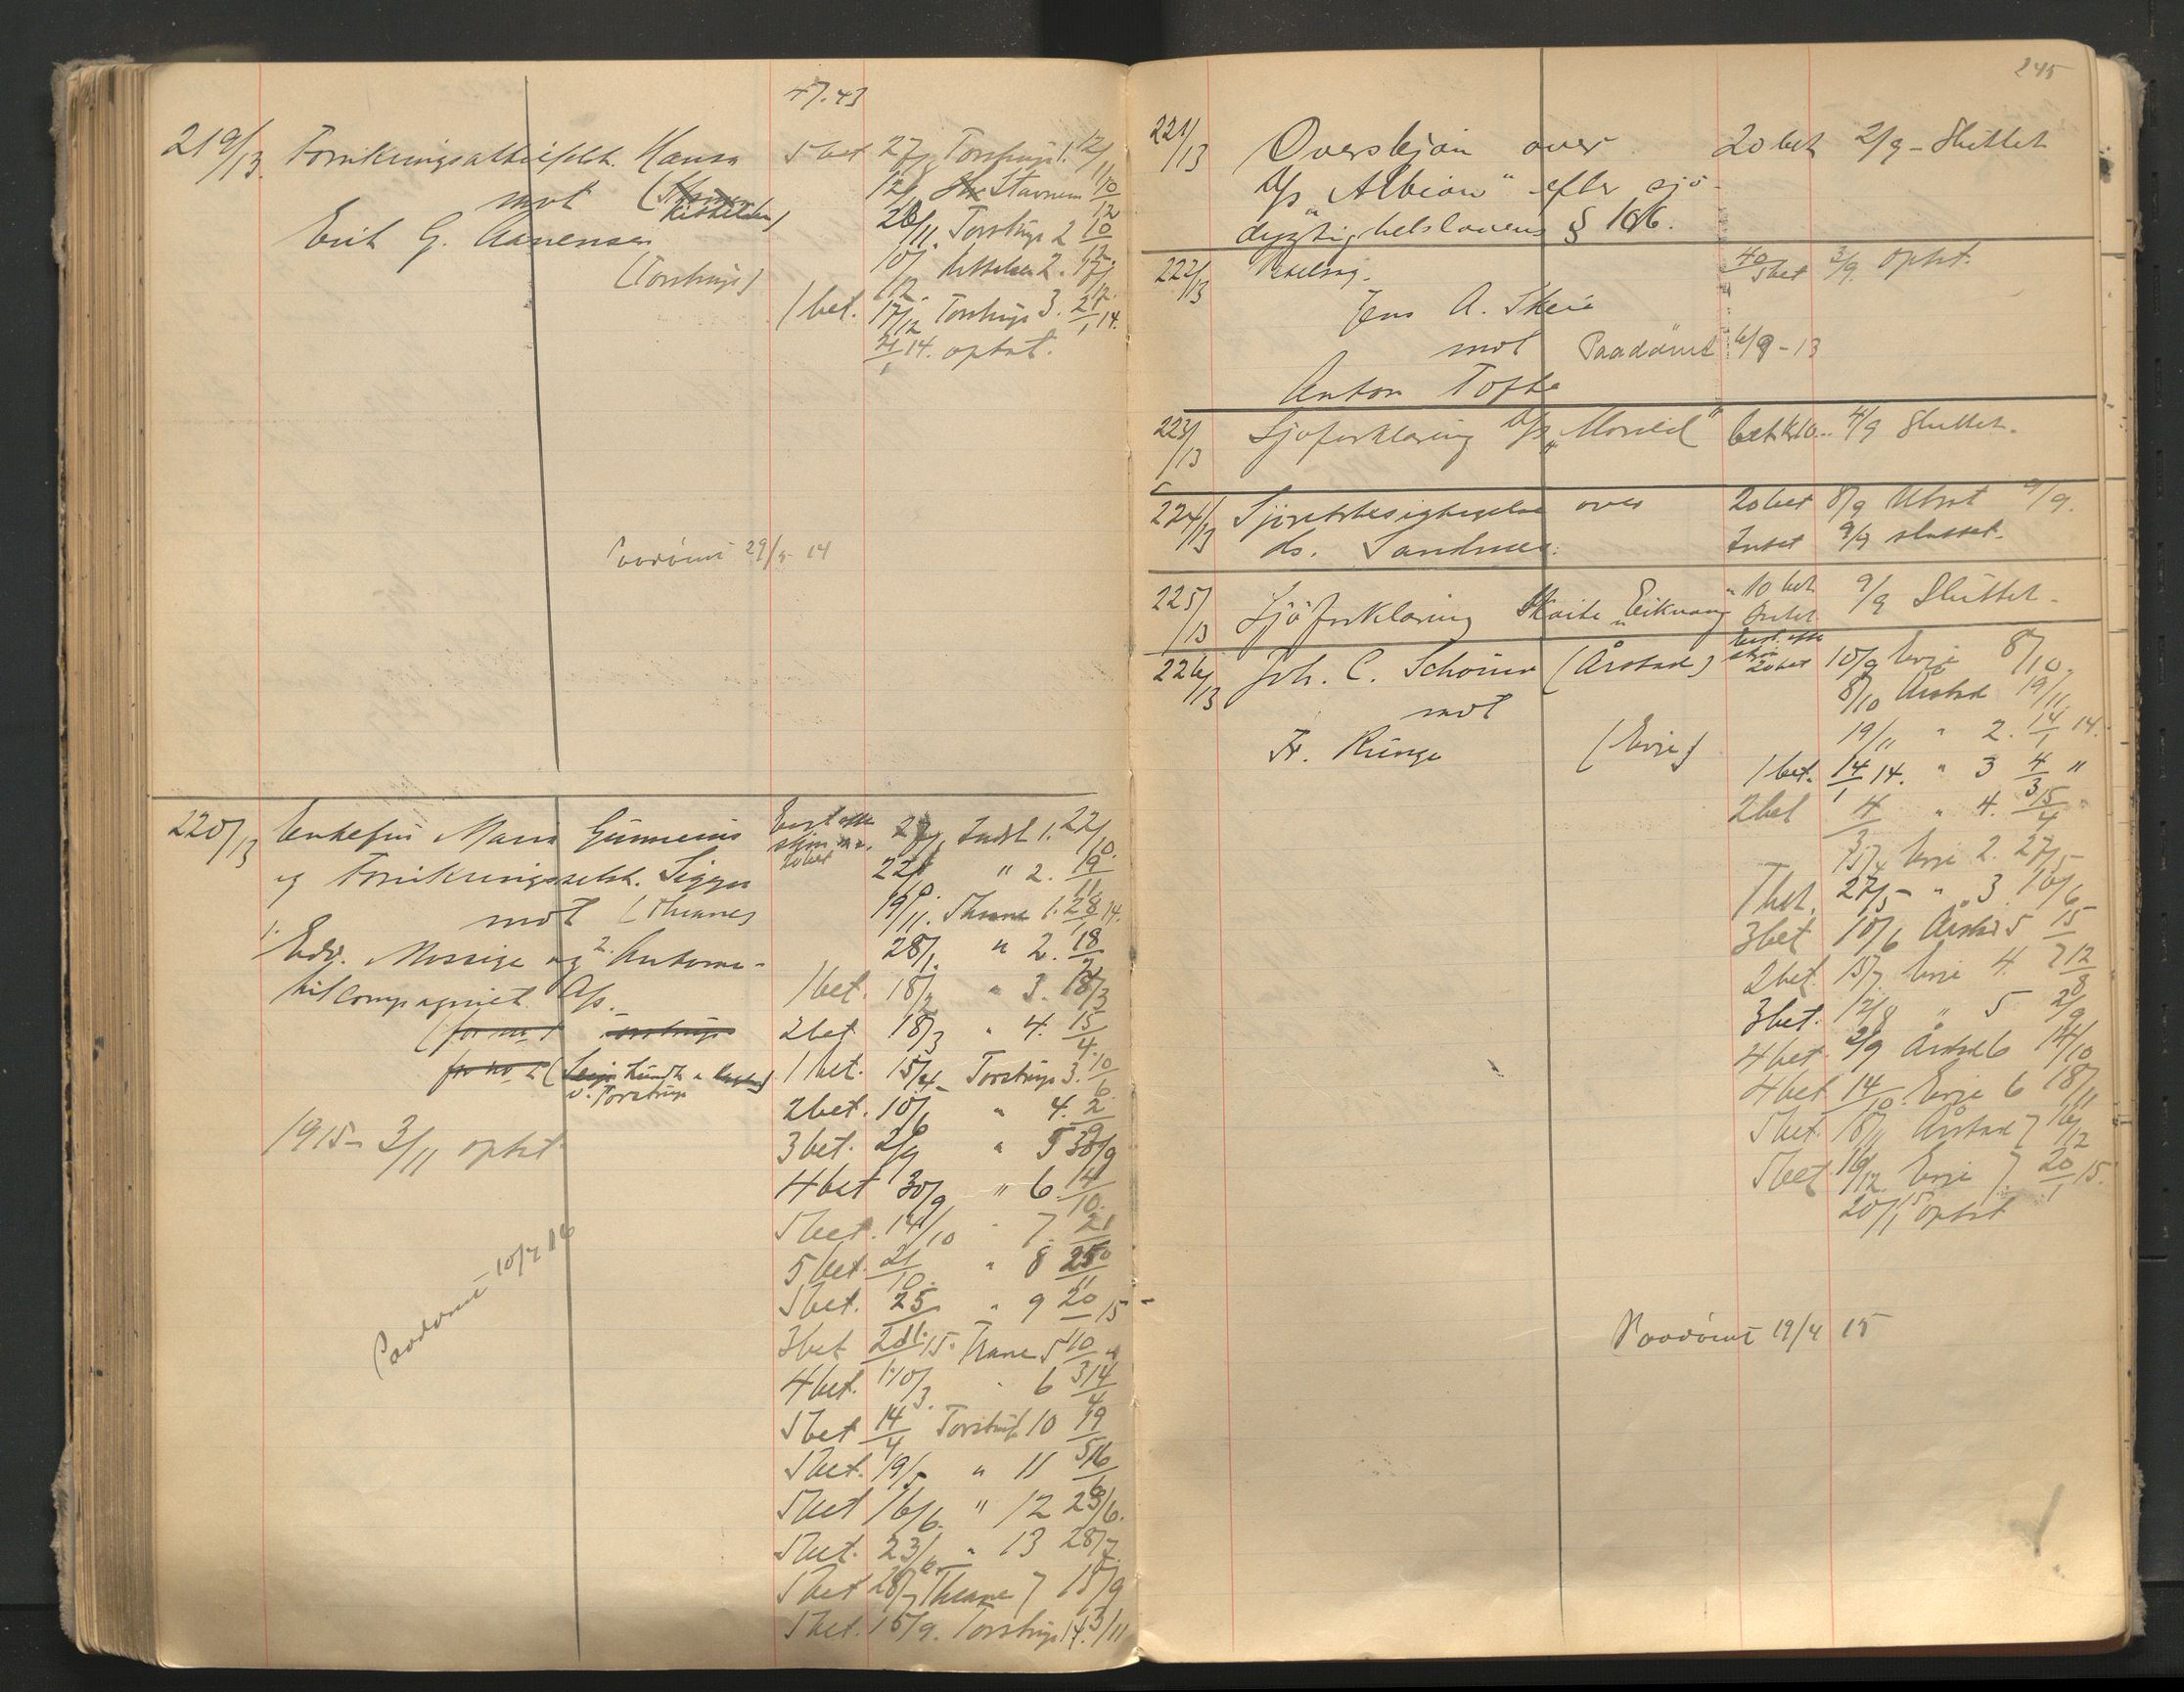 47.43
219/13. Forsikringsaktieselsk. Hansa 5 bet 27/9 Torstrup 1. 12/11
mot (Kittelsen) 12/11 Stavnem 10/12
Erik G. Aanensen 26/11. Torstrup 2 10/12
(Torstrup) 10/12 Kittelsen 2. 17/12.
1 bet. 17/12 Torstrup 3. 21/1 14.
21/1 14. optat.
Paadömt 29/4 - 14
220/13 Enkefru Maria Gunnerius
og Forsikringsselsk. Sigyn 22/10 " 2. 19/11
mot (Thanes) 19/11. Thane 1. 28/1 14.
1. Edv. Messige og 2. Automo- 28/1. " 2. 18/2
bilcompagniet A/s. 1 bet. 18/2 " 3. 18/3
2 bet 18/3 " 4. 15/4.
1 bet. 15/4 - Torstrup 3. 10/6.
v. Torstrup
2 bet. 10/6 " 4. 2/9
1915 - 3/11 optat 3 bet. 2/9 " 5 30/9
4 bet 30/9 " 6 14/10.
5 bet. 14/10 " 7. 21/10
5 bet. 21/10. " 8 25/11
Paadömt 10/4 16
5 bet. 25/11 " 9 20/1 15 -
3 bet 20/1 15. Thane 5 10/3 "
4 bet. 10/3. " 6 14/4
5 bet 14/4 Torstrup 10 19/5
5 bet. 19/5 " 11 16/6
5 bet 16/6. " 12 23/6.
5 bet. 23/6 " 13 28/7.
5 bet 28/7 Thane 7 15/9
5 bet. 15/9. Torstrup 14. 3/11
245
221/13 Overskjön over 20 bet 2/9 - Sluttet
D/s "Albion" efter sjö-
dygtighetslovens § 106.
222/13 Vekselsag. 40/5 bet 3/9. optat.
Jens A. Skeie
mot Paadömt 6/9 - 13
Anton Tofte
223/13 Sjöforklaring D/s "Morild" 4/9 Sluttet.
224/13 Sjöretsbesigtigelse over 20 bet 8/9 Utsat 9/9.
ds. Sandnes. Intet 9/9 sluttet.
225/13 Sjöforklaring Sköite "Eikvang" 10 bet 9/9 Sluttet -
226/13 Joh. C. Schöner (Årstad) 20 bet 10/9 Evje 8/10.
mot 8/10 Årstad 19/11.
Fr. Runge (Evje) 19/11 " 2. 14/1 14.
1 bet. 14/1 14. " 3 4/3 "
2 bet 4/3 " 4. 15/4 "
15/4 Evje 2. 27/5 -
1 bet. 27/5 - " 3. 10/6
3 bet 10/6 Årstad 5 15/7
2 bet. 15/7. Evje 4. 12/8
3 bet. 12/8 " 5 2/9
4 bet. 2/9 Årstad 6 14/10
4 bet 14/10. Evje 6 18/11
5 bet. 18/11 Årstad 7 16/12
5 bet 16/12. Evje 7. 20/1 15.
20/1 15. optat
Paadömt 19/4 15